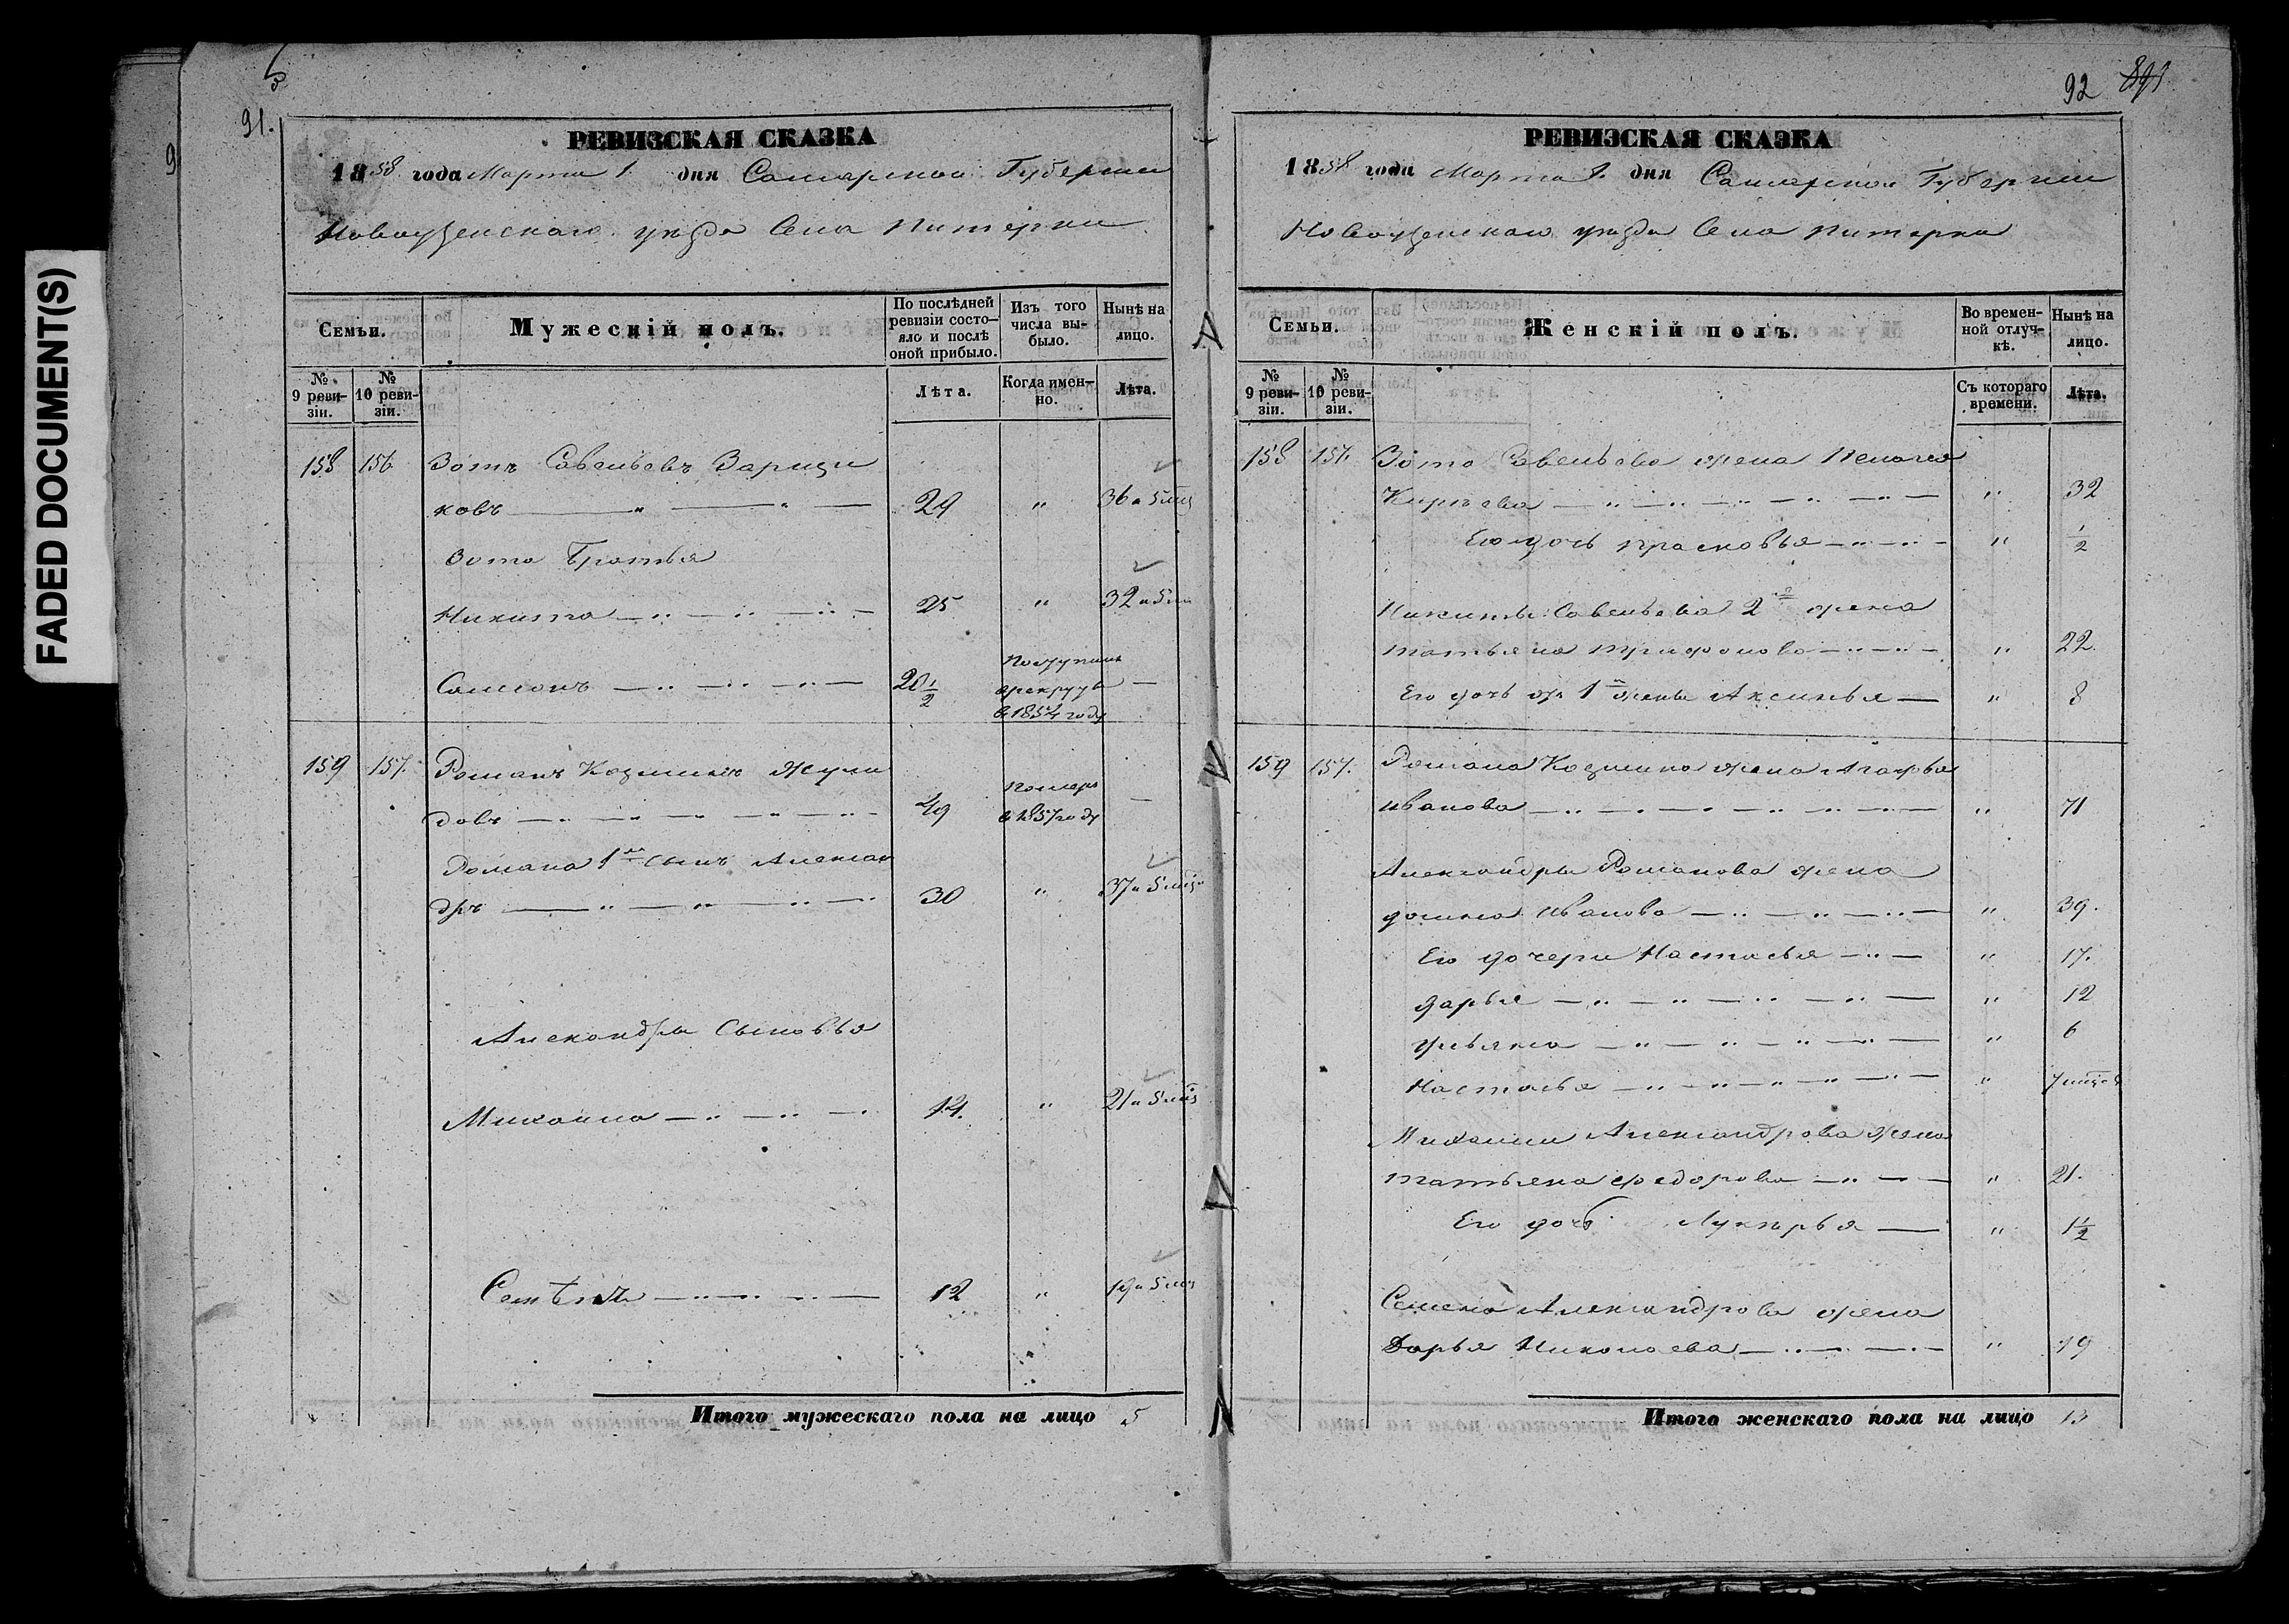 FADED DOCUMENT(S)
91.
РЕВИЗСКАЯ СКАЗКА
1858 года Марта 1. дня Самарской Губернии
Новоузенскаго уѣзда Села Питерки
Семьи.
Мужескій полъ.
По послѣдней ревизіи состо-яло и послѣ оной прибыло.
Изъ того числа вы-было.
Нынѣ на лицо.
№ 9 реви-зіи.
№ 10 реви-зіи.
Лѣта.
Когда имен-но.
Лѣта.
158 156 Зотъ Савельевъ Зарици
ковъ — " — " — 29 " 36 и 5 мец
Зота Братья
Никита — " — " — " — 25 " 32 и 5 м
Самсонъ — " — " — " — 20 1/2 Поступилъ врекруты в 1854 году —
159 157. Романъ Козминъ Жули
довъ — " — " — " — " — 49 Померъ в 1857 году —
Романа 1й сынъ Алексан
дръ — " — " — " — " 30 " 37 и 5 мец
Александры Сыновья
Михаила — " — " — " 14. " 21 и 5 мец
Семѣнъ — " — " — " — 12 " 19 и 5 мец
Итого мужескаго пола на лицо 5
92
РЕВИЗСКАЯ СКАЗКА
1858 года Марта 1. дня Самарской Губернии
Новоузенскаго уѣзда Села Питерки
Семьи.
Женскій полъ.
Во времен-ной отлуч-кѣ.
Нынѣ на лицо.
№ 9 реви-зіи.
№ 10 реви-зіи.
Съ котораго времени.
Лѣта.
158 157. Зота Савельева жена Пелагея
Кирѣева — " — " — " — " — " 32
Его дочь Прасковья — " — " — " 1/2
Никиты Савельева 2я жена
татьяна трифонова — " — " — " 22.
Его дочь от 1й жены Аксинья — " 8
159 157. Романа Козмина жена Агафья
иванова — " — " — " — " — " — " 71
Александры Романова жена
домна иванова — " — " — " — " 39.
Его дочери Настасья — " — " 17.
дарья — " — " — " — " — " 12
ульяна — " — " — " — " — " 6
Настасья — " — " — " — " — " 7 мецов
Михаили Александрова Жена
татьяна федорова — " — " — " 21.
Его дочь Лукѣрья — " 1 1/2
Семена Александрова жена
Дарья Николаева — " — " — " 19
Итого женскаго пола на лицо 13